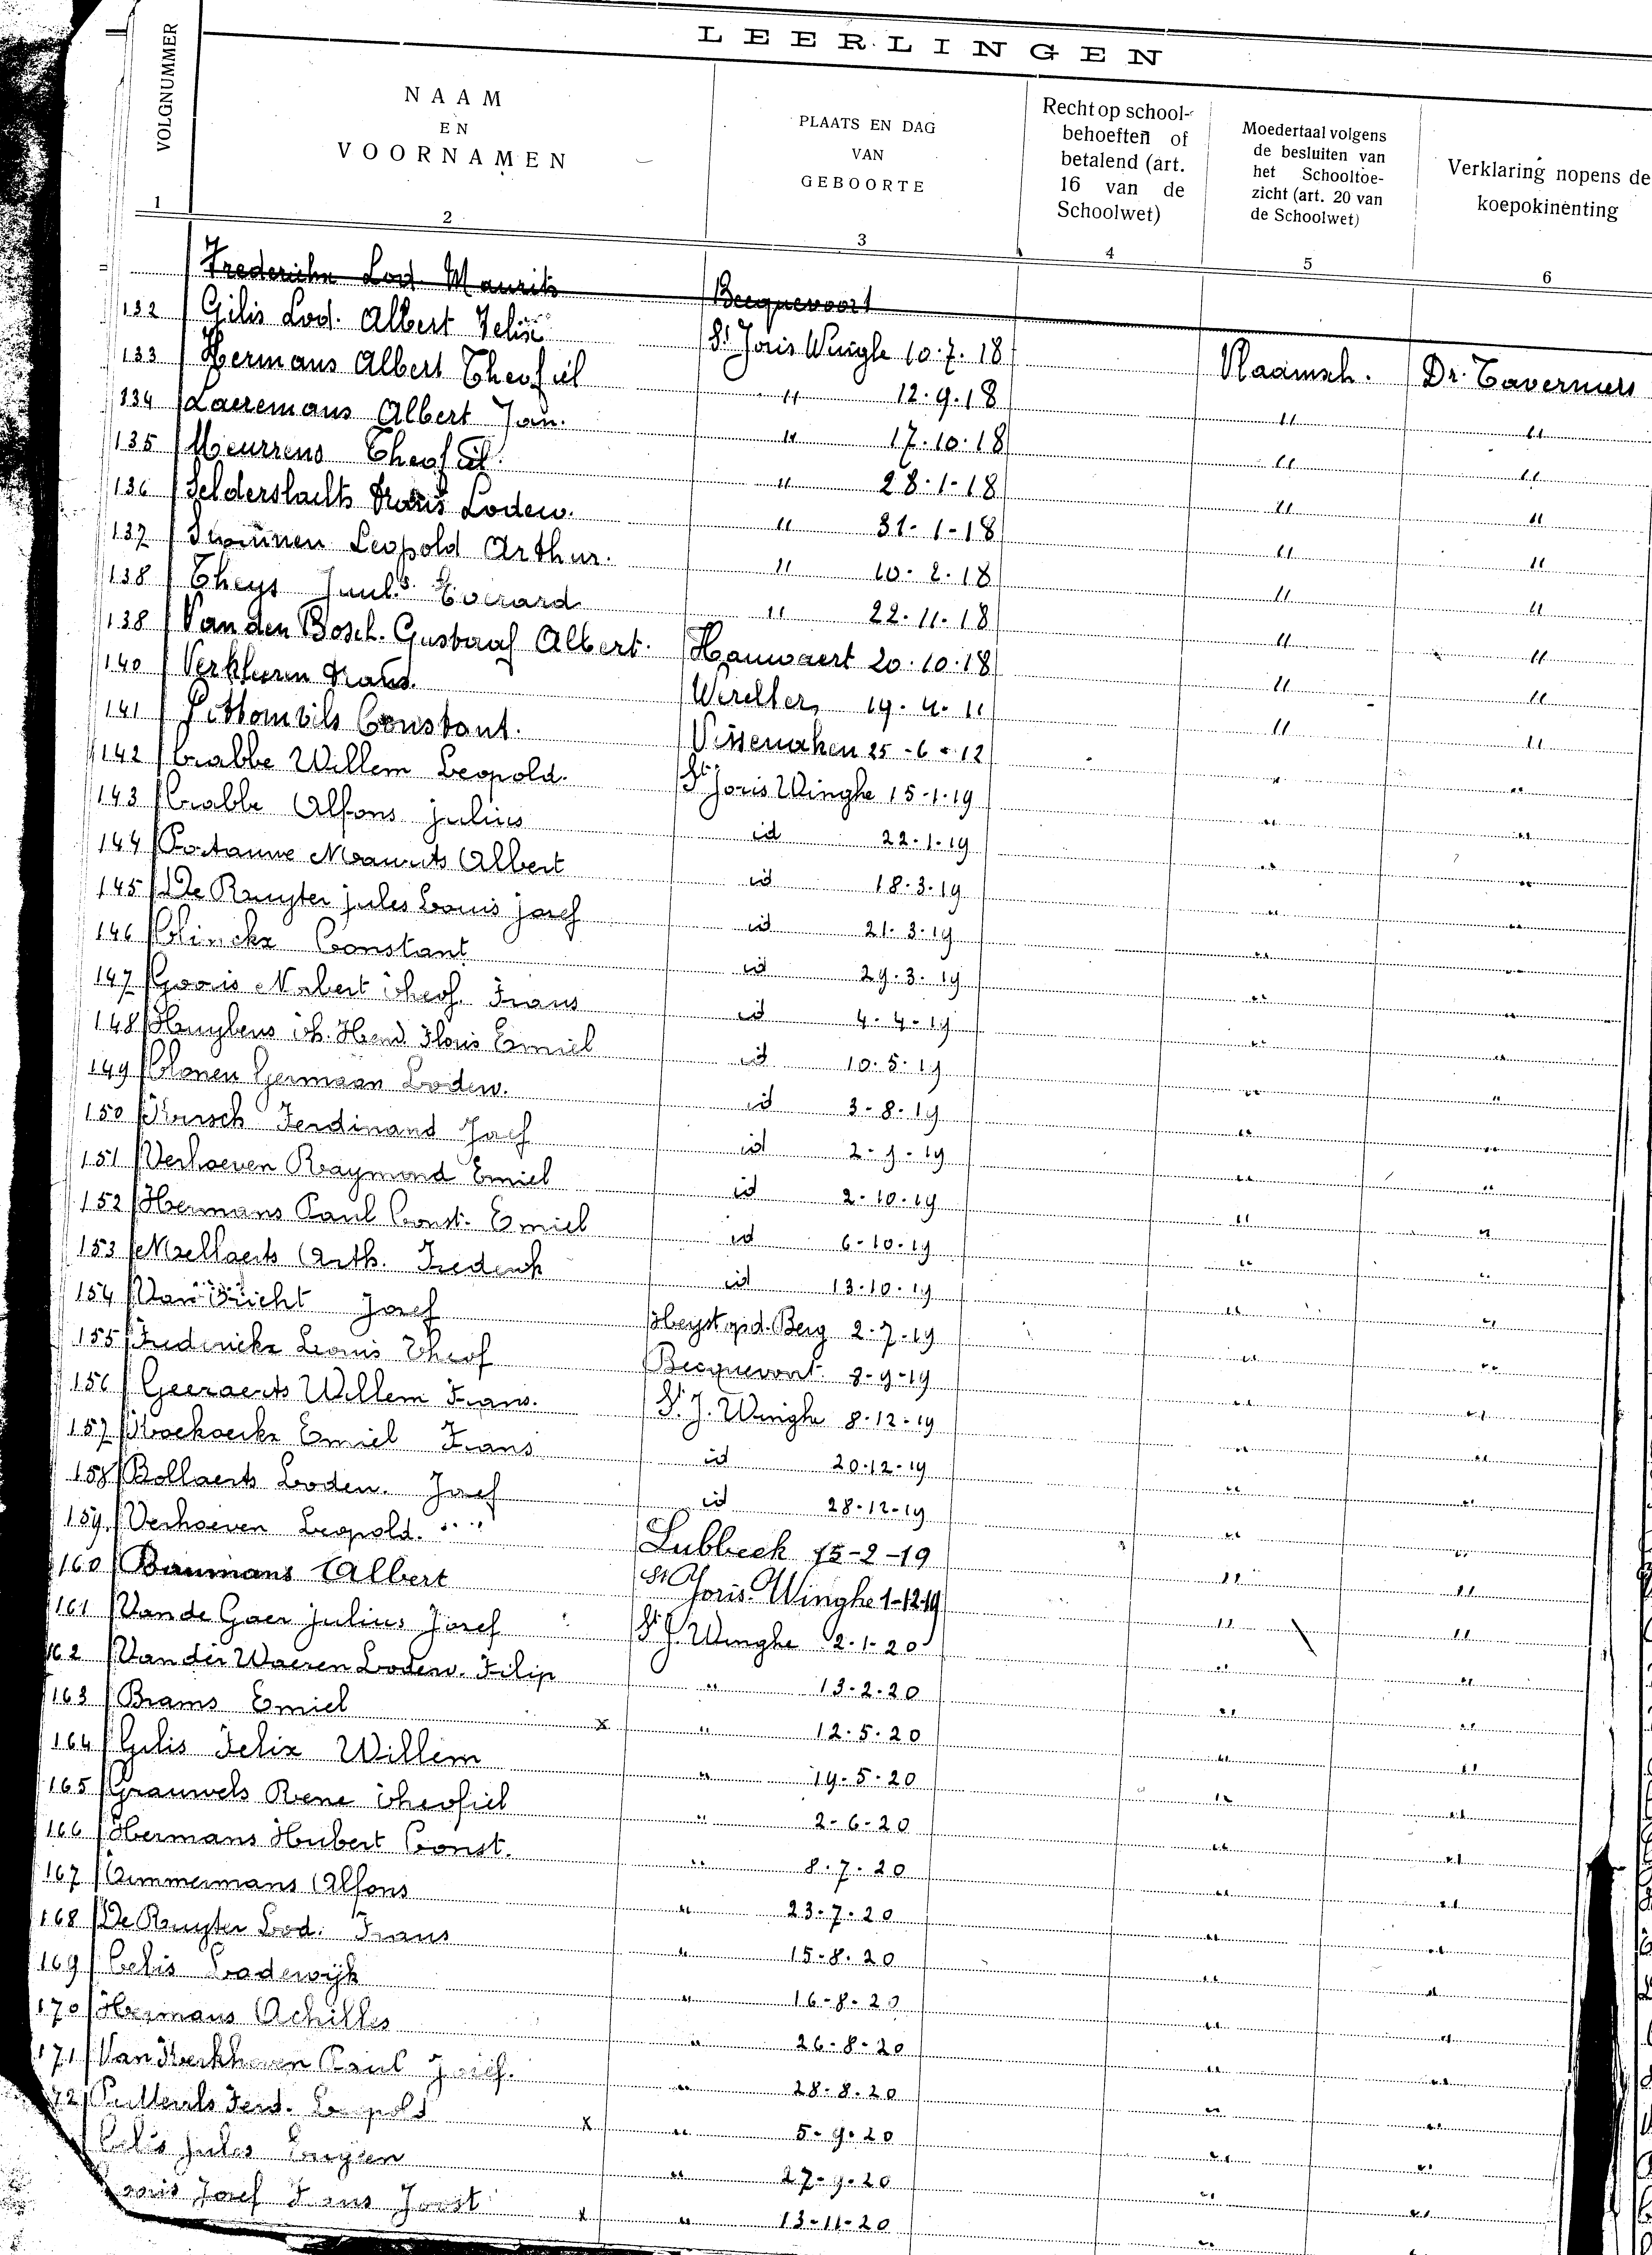 LEERLINGEN
VOLGNUMMER
NAAM
EN
VOORNAMEN
PLAATS EN DAG
VAN
GEBOORTE
Recht op school-
behoeften of
betalend (art.
16 van de
Schoolwet)
Moedertaal volgens
de besluiten van
het Schooltoe-
zicht (art. 20 van
de Schoolwet)
Verklaring nopens de
koepokinenting
1 2 3 4 5 6
Frederickx Lod. Maurits Becquevoort
132 Gilis Lod. Albert Felix St Joris Winghe 10.7.18 Vlaamsch. Dr. Taverniers
133 Hermans Albert Theofiel " 12.9.18 " "
134 Laeremans Albert Jan. " 17.10.18 " "
135 Meurrens Theofiel. " 28.1-18 " "
136 Selderslachts Frans Lodew. " 31-1-18 " "
137 Swinnen Leopold Arthur. " 10-2-18 " "
138 Theys Juul.s Everard " 22-11-18 " "
138 Van den Bosch. Gustaaf Albert. Hauwaert 20.10.18 " "
140 Frans. 19-4-11 " "
141 Pittomvils Constant. Vissenaken 25-6-12 " "
142 Crabbe Willem Leopold. St Joris Winghe 15-1-19 " "
143 Crabbe Alfons julius id 22-1-19 " "
144 Maurits Albert id 18-3-19 " "
145 De Ruyter jules Louis josef id 21-3-19 " "
146 Clinckx Constant id 29.3.19 " "
147 Gooris Norbert Theof. Frans id 4-4-19 " "
148 Huybens th. Hend Floris Emiel id 10.5.19 " "
149 Clonen Germaan Lodew. id 3-8-19 " "
150 Ferdinand Josef id 2-9-19 " "
151 Verhoeven Raymond Emiel id 2-10-19 " "
152 Hermans Paul Const. Emiel id 6-10-19 " "
153 Mellaerts Arth. Frederik id 13-10-19 " "
154 Josef Heyst op d. Berg 2-7-19 " "
155 Frederickx Louis Theof Becquevoort. 8-9-19 " "
156 Geeraerts Willem Frans. St. J. Winghe 8-12-19 " "
157 Emiel Frans id 20-12-19 " "
158 Bollaerts Lodew. Josef id 28-12-19 " "
159. Verhoeven Leopold. Lubbeek 15-2-19 " "
160 Baumans Albert St Joris Winghe 1-12-19 " "
161 Van de Gaer julius Josef St J. Winghe 2-1-20 " "
162 Van der Waeren Lodew. Filip " 13-2-20 " "
163 Brams Emiel x " 12.5.20 " "
164 Gilis Felix Willem " 19-5-20 " "
165 Grauwels Rene Theofiel " 2-6-20 " "
166 Hermans Hubert Const. " 8.7.20 " "
167 Timmermans Alfons " 23-7-20 " "
168 De Ruyter Lod. Frans " 15-8.20 " "
169 Celis Lodewijk " 16-8-20 " "
170 Hermans Achilles " 26-8-20 " "
171 Van Kerkhoven Paul Josef. " 28-8.20 " "
72 Ferd. Leopold x " 5-9.20 " "
Celis Jules Eugeen " 27-9-20 " "
Josef Frans Joost x " 13-11-20 " "